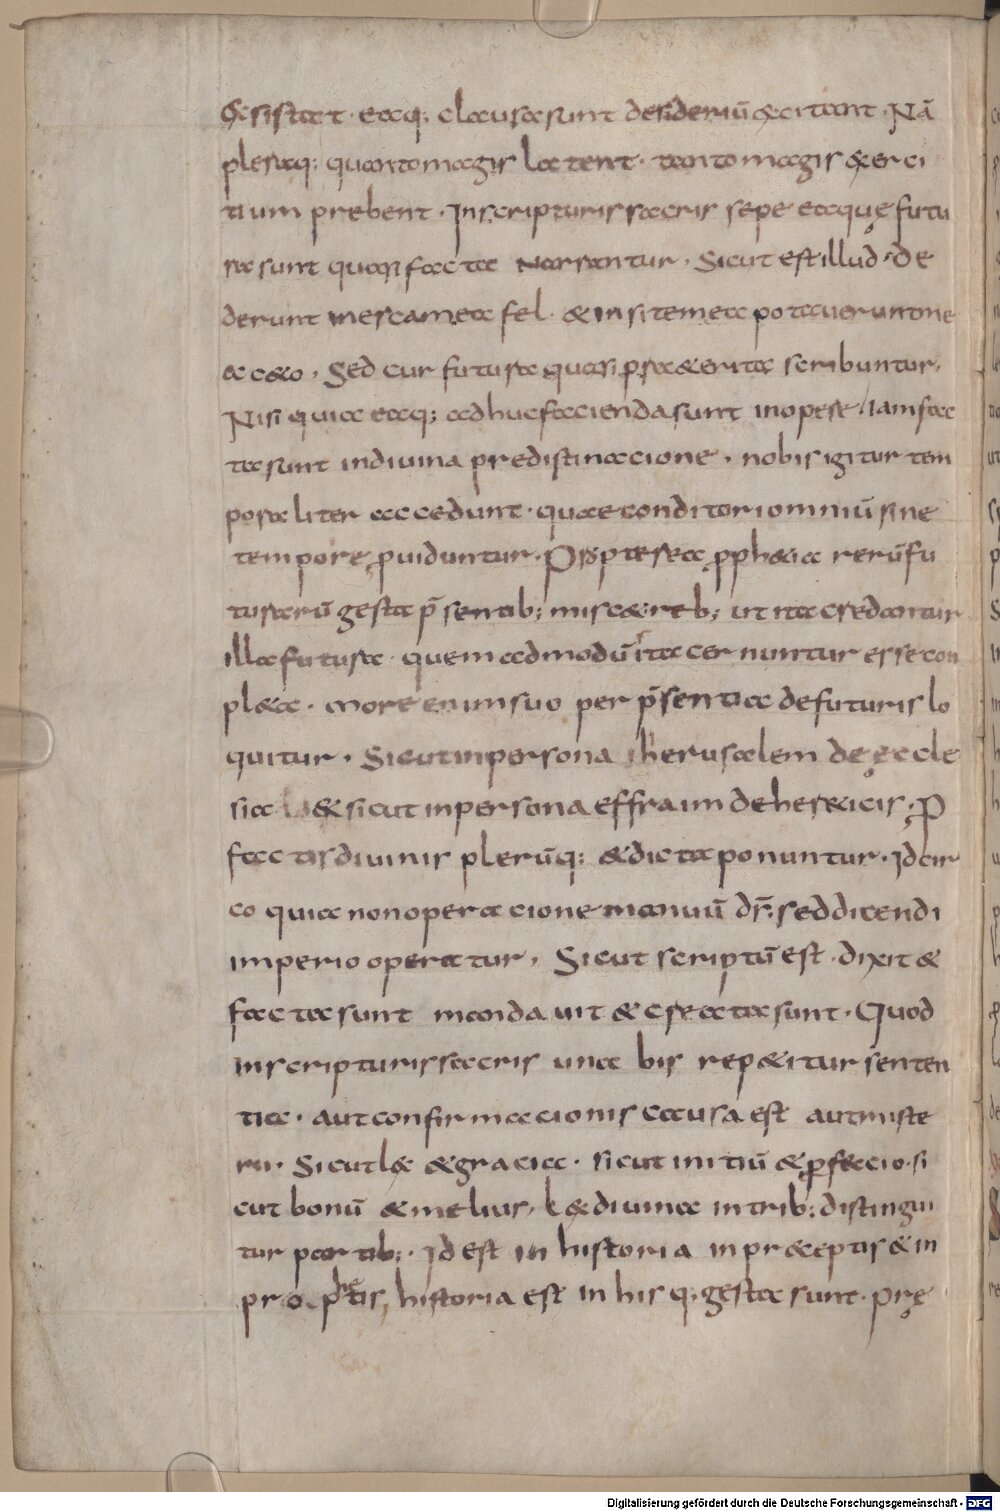 & sistat · eaq; clausa sunt desideriū excitant · Nā
pleraq; quanto magis latent · tanto magis exerci
tium prebent · In scripturis sacris sepe eaque futu
ra sunt quasi facta narrantur · Sicut est illud · de
derunt in escam ea fel · & in siti mea potauerunt me
aceto · Sed cur futura quasi praeterita scribuntur ·
Nisi quia eaq; adhuc facienda sunt in opere / iam fac
ta sunt in diuina predistinaccione · nobis igitur tem
poraliter accedunt · quae conditori omniū sine
tempore puiduntur · Propterea pphetia rerū fu
turarū gesta p̄sentib; miscet reb; ut ita credantur
illa futura · quem admodū ita cernuntur esse con
pleta · more enim suo per p̄sentia de futuris lo
quitur · Sicut in persona iherusalem de ęccle
sia & sicut in persona effraim de hereticis · P
factis diuinis plerūq; & dicta ponuntur · Idcir
co quia non operacione manuū dr̄ · sed dicendi
imperio operatur · Sicut scriptū est · dixit &
facta sunt mandauit & creata sunt · Quod
in scripturis sacris una bis repetitur senten
tia · aut confirmacionis causa est aut miste
rii · Sicut lex & gracia · sicut initiū & pfeccio · si
cut bonū & melius · Lex diuina in trib; distingui
tur partib; · Id est in historia in preceptis & in
pro phetis, historia est in his q; gesta sunt · prę
Digitalisierung gefördert durch die Deutsche Forschungsgemeinschaft - DFG